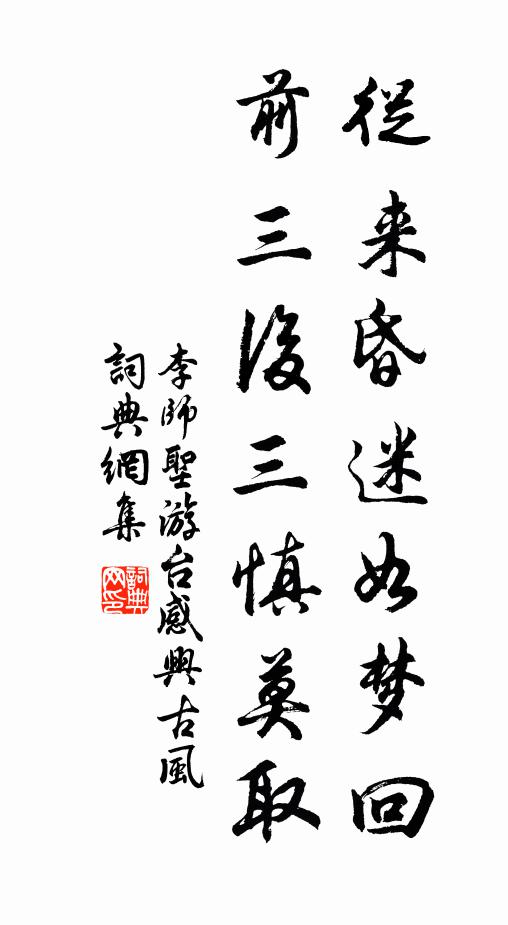 從来昏迷如梦回
前三後三慎莫取
李师聖游台感興古風
詞典網集
詞典网印